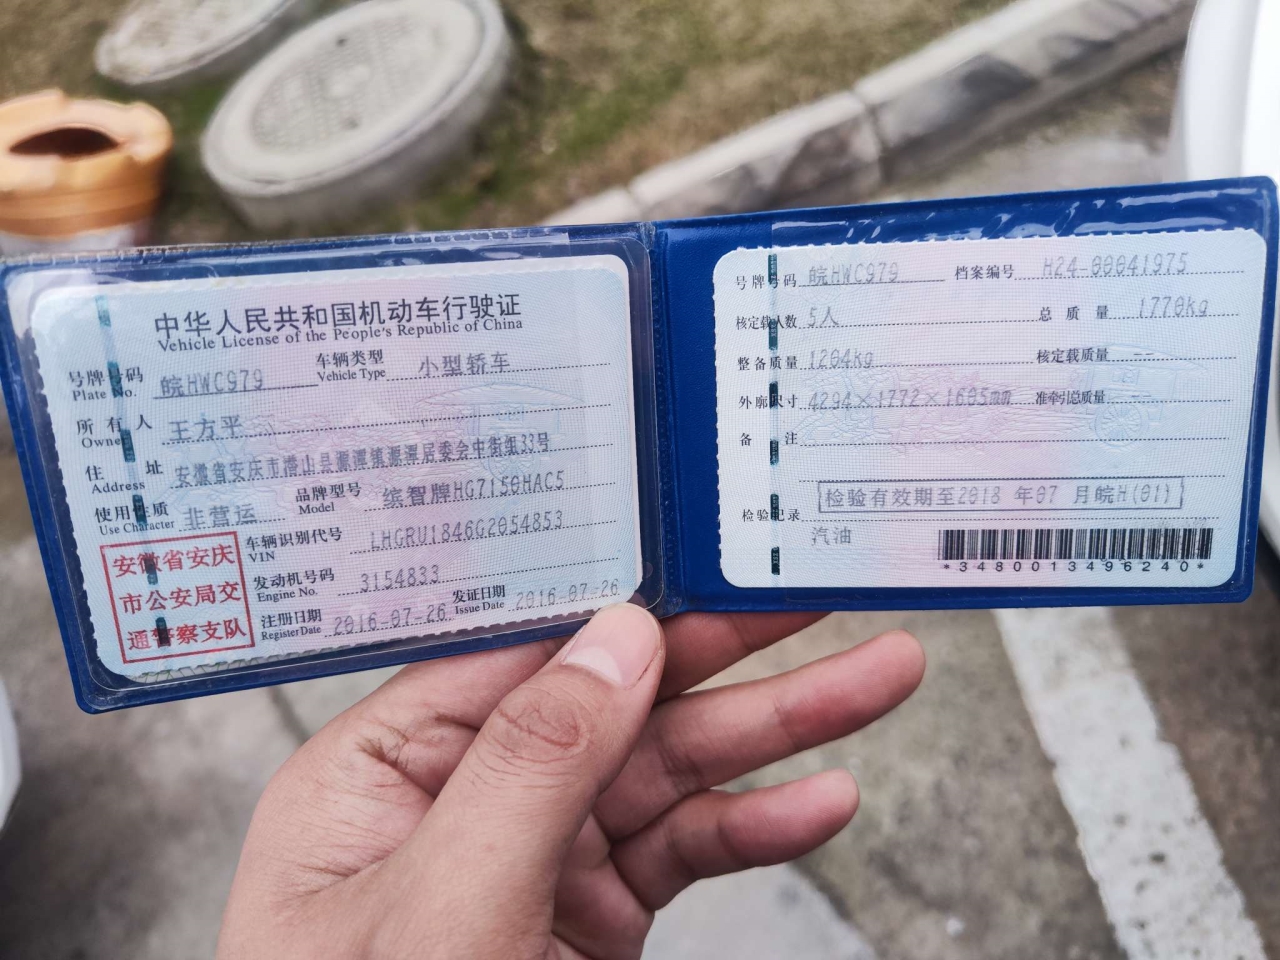 中华人民共和国机动车行驶证
Vehicle License of the People's Republic of China
号牌号码 皖HWC979 车辆类型 小型轿车
Plate No. Vehicle Type
所有人 王方平
Owner
住址 安徽省安庆市潜山县源潭镇源潭居委会中街组33号
Address
使用性质 非营运 品牌型号 缤智牌HG7150HAC5
Use Character Model
安徽省安庆市公安局交通警察支队
车辆识别代号 LHGRU1846G2054853
VIN
发动机号码 3154833
Engine No.
注册日期 2016-07-26 发证日期 2016-07-26
Register Date Issue Date
号牌号码 皖HWC979 档案编号 H24-00041975
核定载人数 5人 总质量 1770kg
整备质量 1264kg 核定载质量 --
外廓尺寸 4294×1772×1605mm 准牵引总质量 --
备注
检验记录 检验有效期至2018 年07 月皖H(01)
汽油
*3480013496240*